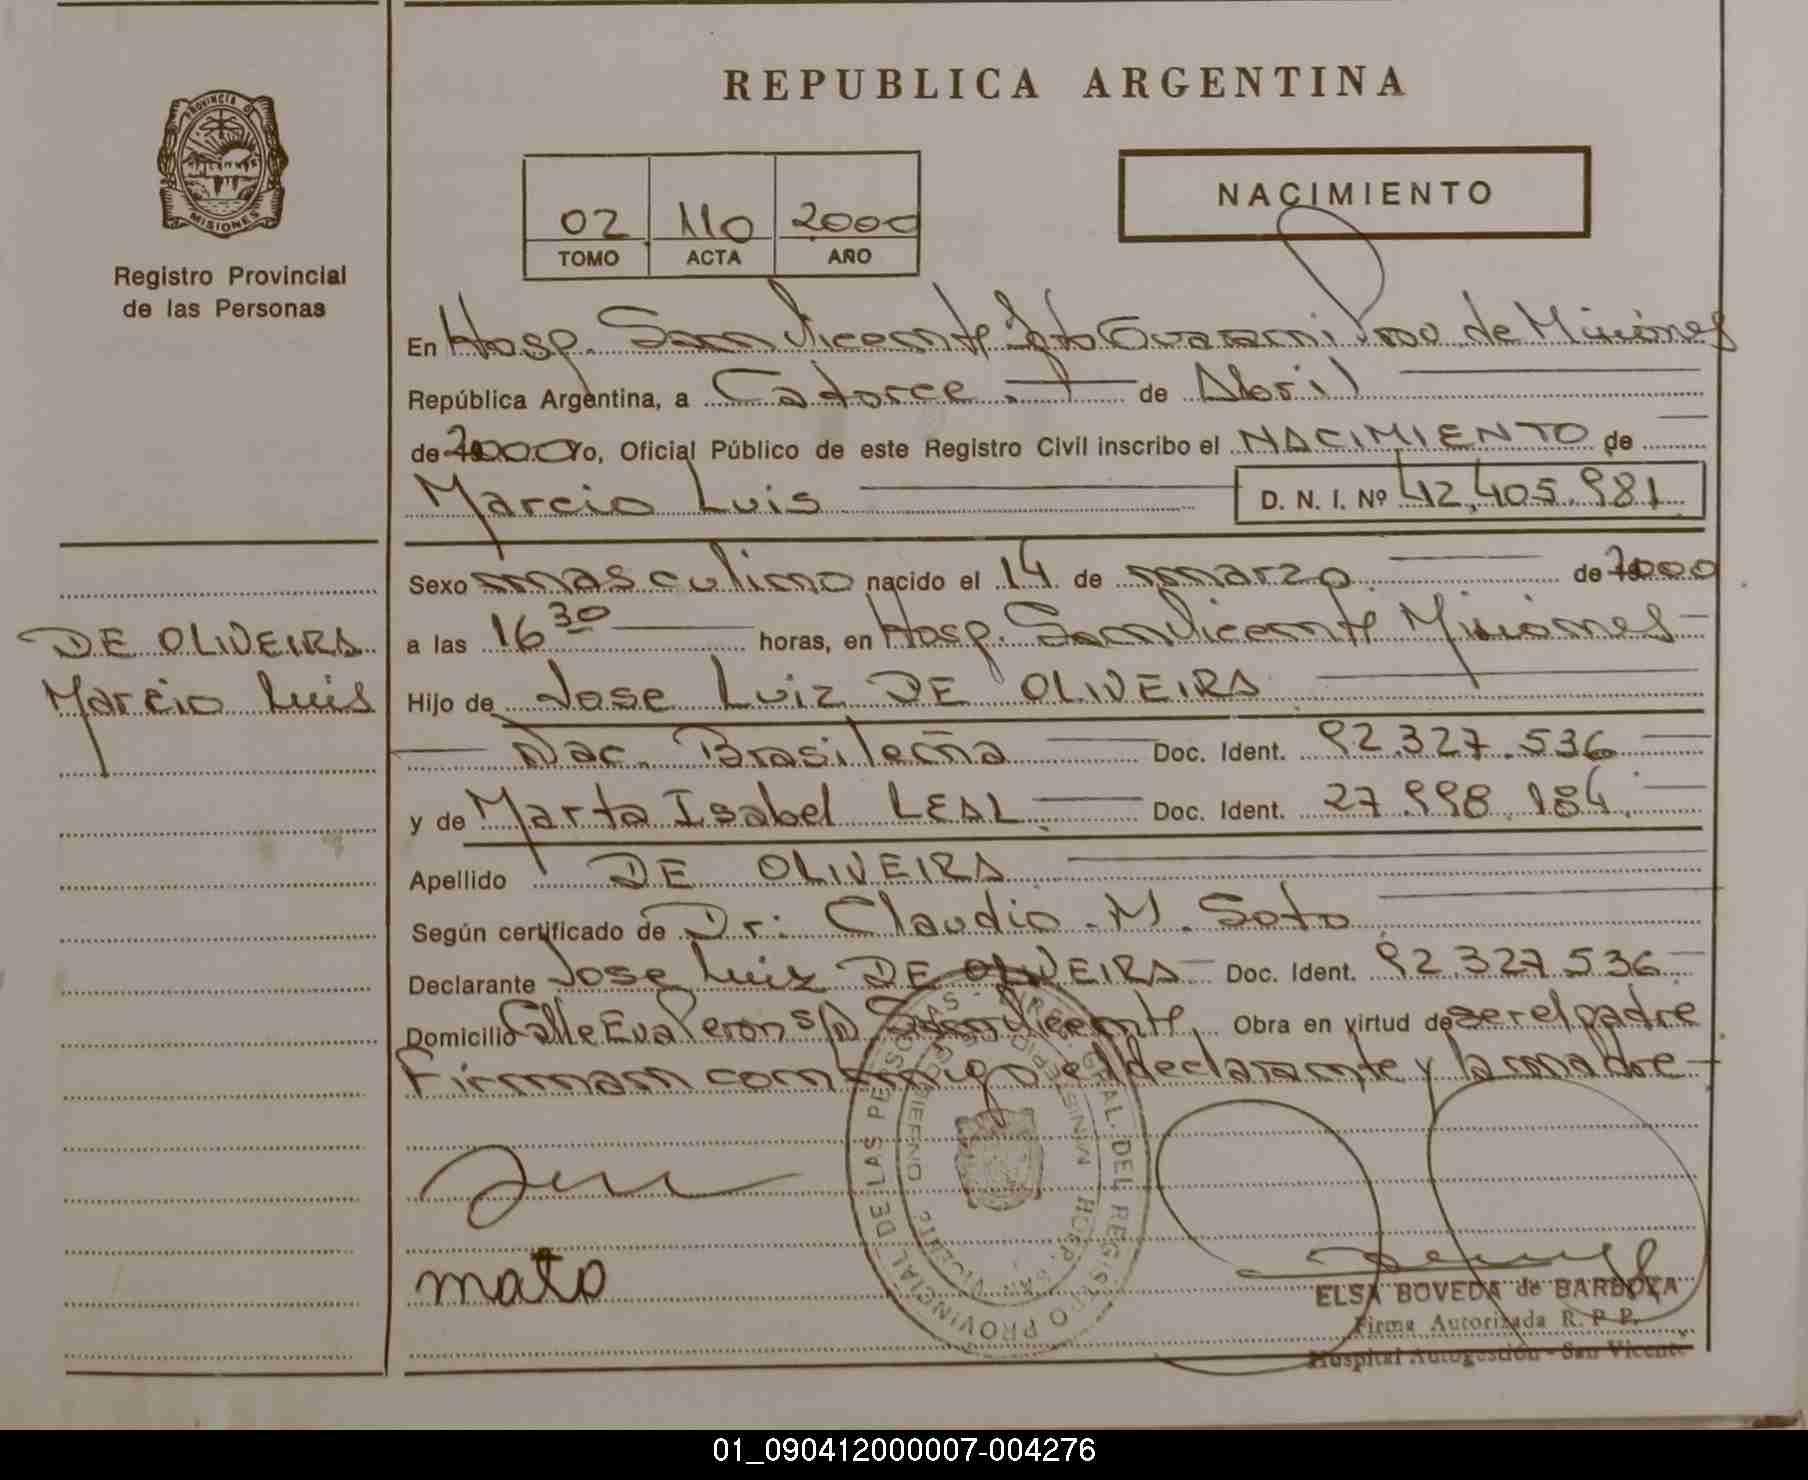 REPUBLICA ARGENTINA
PROVINCIA DE
MISIONES
Registro Provincial
de las Personas
02 110 2000
TOMO ACTA AÑO
NACIMIENTO
En Hosp. San Vicente Dpto Guarani Pno de Misiones
República Argentina, a Catorce de Abril
de 2000 Yo, Oficial Público de este Registro Civil inscribo el NACIMIENTO de
Marcio Luis D. N. I. Nº 42.405.981
Sexo masculino nacido el 14 de marzo de 2000
a las 16 30 horas, en Hosp. San Vicente Misiones
DE OLIVEIRA
Marcio Luis
Hijo de Jose Luiz DE OLIVEIRA
Nac. Brasileña Doc. Ident. 92.327.536
y de Marta Isabel LEAL Doc. Ident. 27.998.184
Apellido DE OLIVEIRA
Según certificado de Dr: Claudio M. Soto
Declarante Jose Luiz DE OLIVEIRA Doc. Ident. 92.327.536
Domicilio Calle Eva Peron s/n San Vicente Obra en virtud de ser el padre
Firman conmigo el declarante y la madre
mato
GRAL. DEL REGISTRO PROVINCIAL DE LAS PERSONAS
HOSP. SAN VICENTE
ELSA BOVEDA de BARBOZA
Firma Autorizada R. P. P.
Hospital Autogestión - San Vicente
01_090412000007-004276